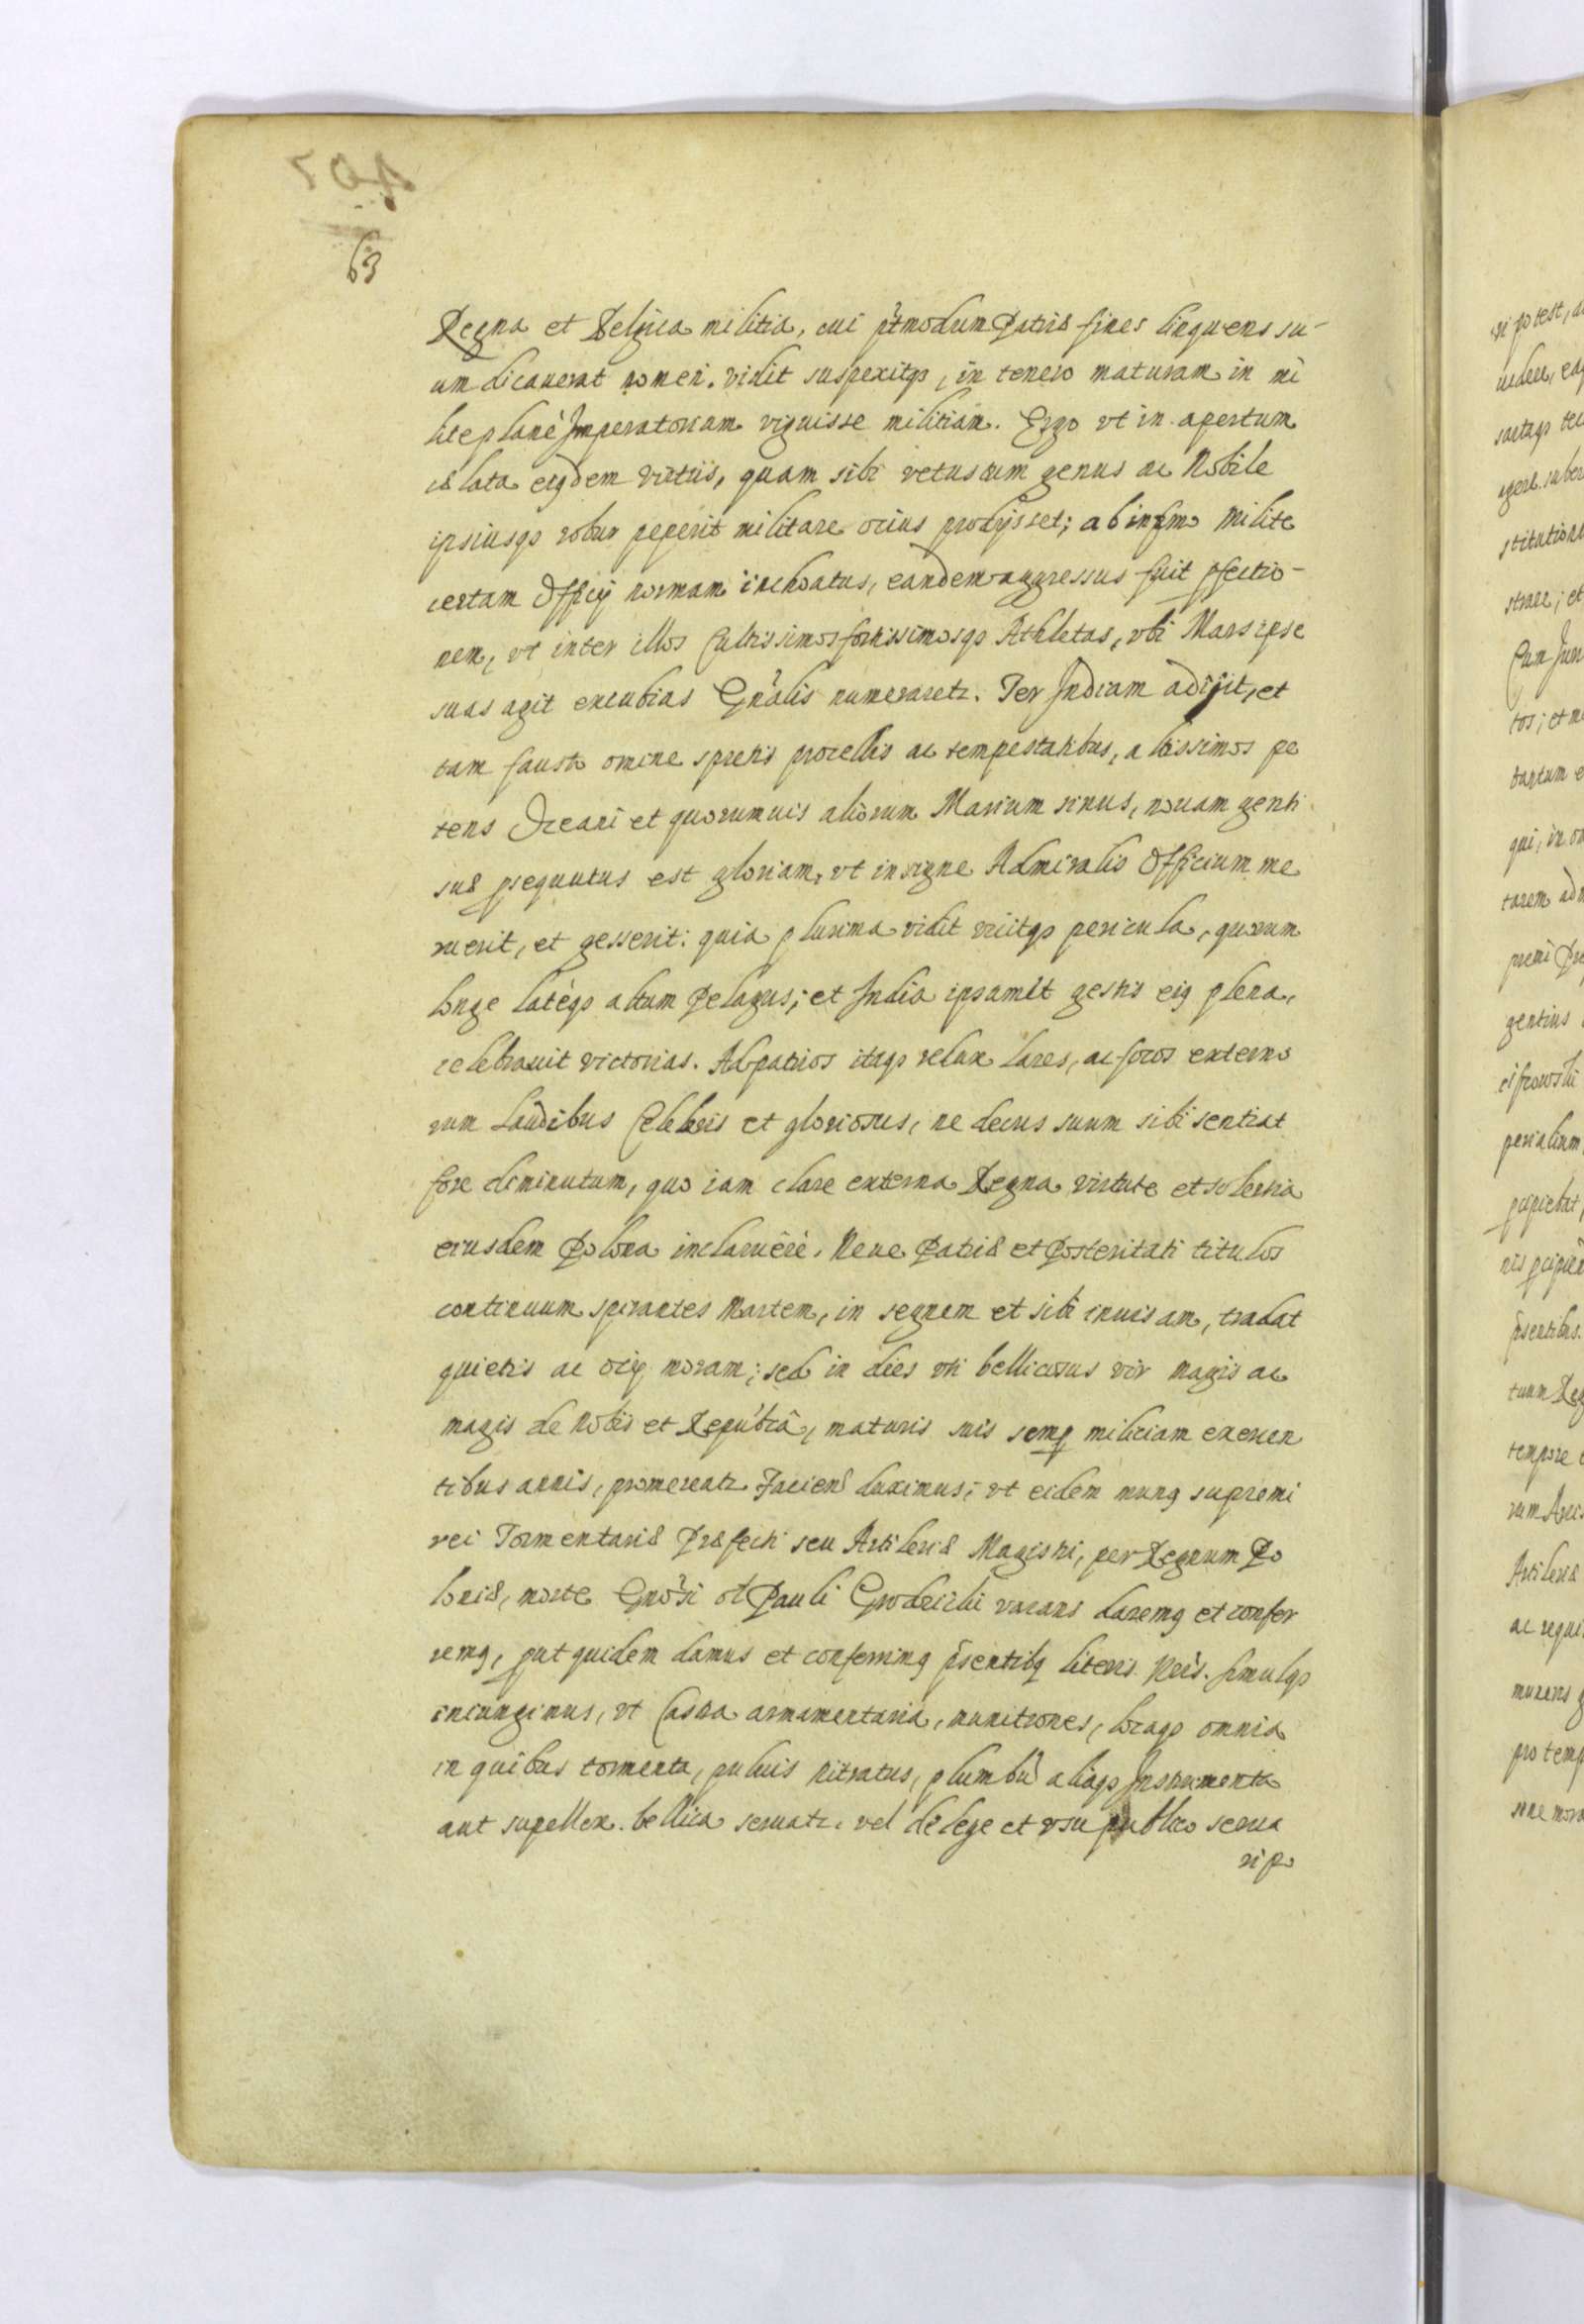 63
Regna et Belgica militia, cui p̃tmodum Patriæ fines linquens su-
um dicauerat nomen. vidit suspexitq₃, in tenero maturam in mi
lite plané Imperatoriam viguisse militiam. Ergo vt in apertum
elata eiꝯdem virtus, quam sibi vetustum genus ac Nobile
ipsiusq₃ robur peperit militare ocius prodijsset; ab infimo milite
certam Officij normam inchoatus, eandem aggressus fuit ꝑfectio-
nem, vt inter illos Cultissimos fortissimosq₃ Athletas, vbi Mars ipse
suas agit excubias Gñalis numeraretr. Ter Indiam adijt, et
tam fausto omine spretis procellis ac tempestatibus, altissimos pe
tens Oceani et quorumuis aliorum Marium sinus, nouam genti
suæ ꝓsequutus est gloriam, vt insigne Admiralis Officium me
ruerit, et gesserit: quia plurima vidit vicitq₃ pericula, quorum
longe latéq₃ altum Pelagus; et India ipsamet gestis eiꝯ plena,
celebrauit victorias. Ad patrios itaq₃ redux lares, ac focos externo
rum Laudibus Celebris et gloriosus, ne decus suum sibi sentiat
fore diminutum, quo iam clare externa Regna virtute et solertia
eiusdem Polona inclaruêre. Neue Patriæ et Posteritati titulos
continuum spirantes Martem, in segnem et sibi inuisam, tradat
quietis ac ocij moram; sed in dies vti bellicosus vir magis ac
magis de Nobis et Republcâ, maturis suis semꝑ miliciam exercen
tibus annis, promereatr Faciend duximus; vt eidem munꝯ supremi
rei Tormentariæ Præfecti seu Artileriæ Magistri, per Regnum Po
loniæ, morte Gnõsi ol Pauli Grodzicki vacans daremꝯ et confer
remꝯ, ꝓut quidem damus et conferimꝯ p̃sentibꝯ literis Nr̃is. simulq₃
iniungimus, vt Castra armamentaria, munitiones, locaq₃ omnia
in quibus tormenta, puluis nitratus, plumbũ aliaq₃ Instrumenta
aut supellex bellica seruatr. vel de lege et vsu publico serua
ri po